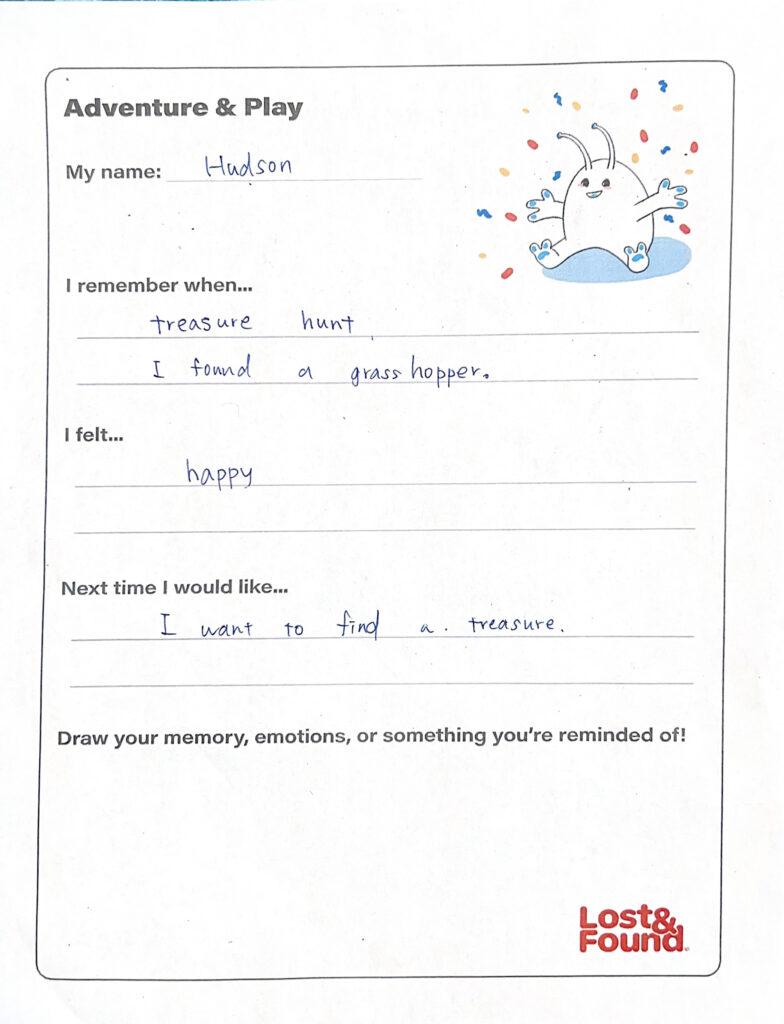 Adventure & Play
My name: Hudson
I remember when...
treasure hunt
I found a grasshopper.
I felt...
happy
Next time I would like...
I want to find a. treasure.
Draw your memory, emotions, or something you're reminded of!
Lost&
Found